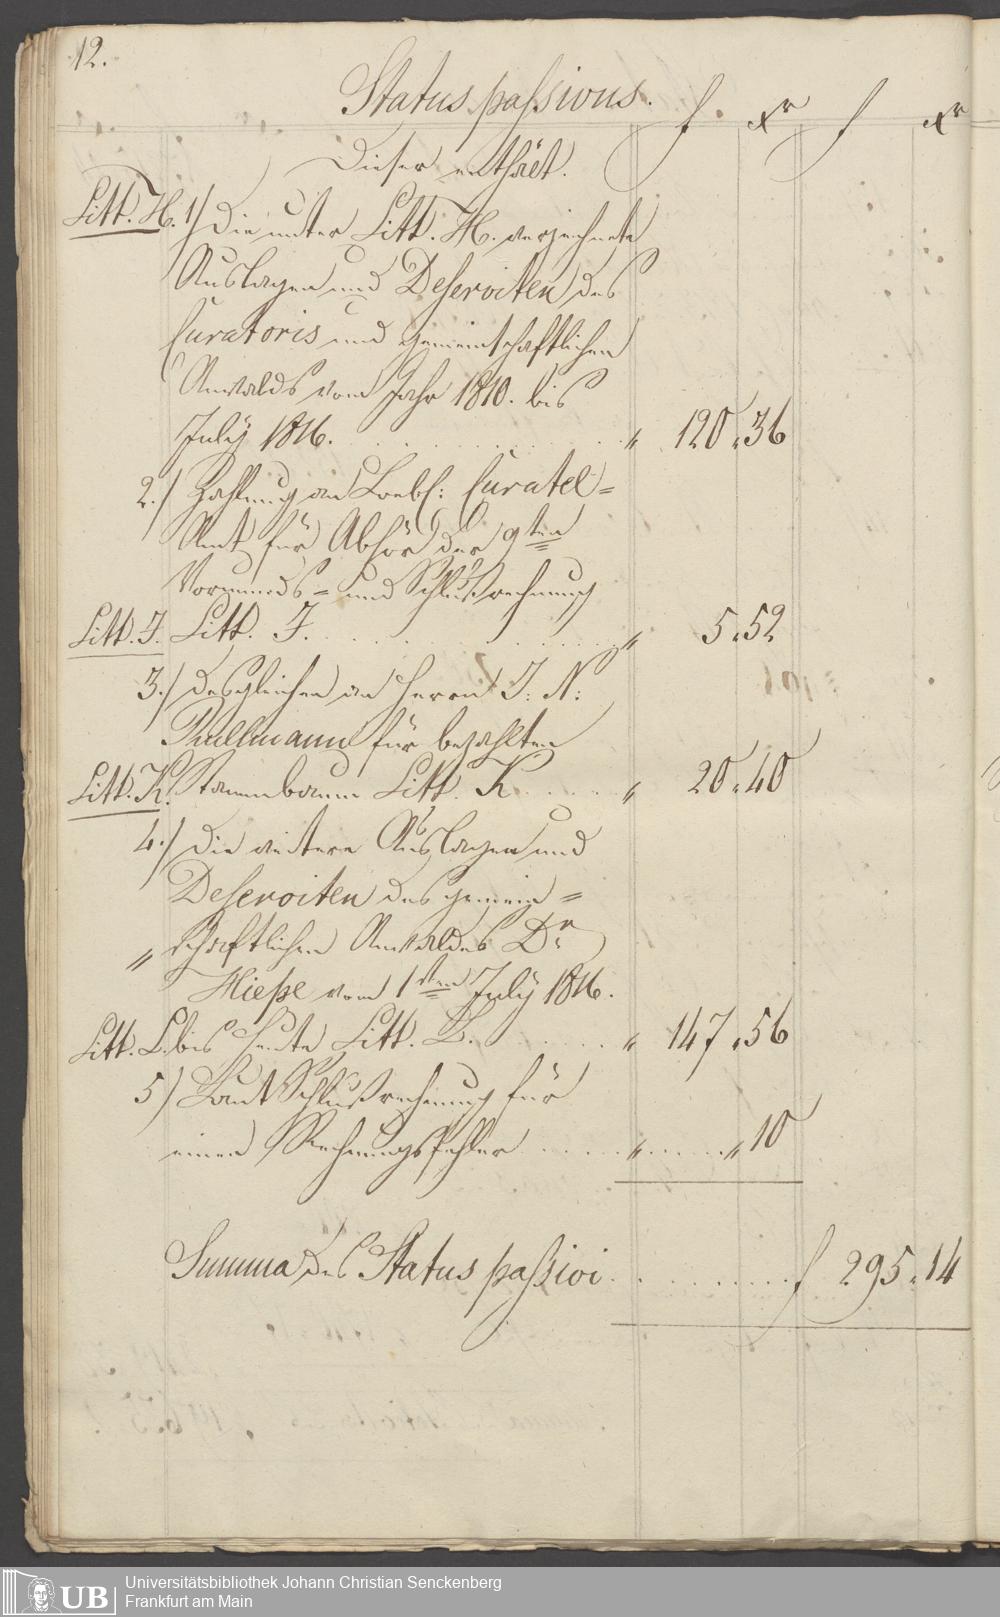 12.
Status passivus.
f. xr f xr
Dieser enthält.
Litt. H. 1) Die unter Litt. H. verzeichnete
Auslagen und Deserviten des
Curatoris und gemeinschaftlichen
Anwalds vom Jahr 1810. bis
July 1816. . . . . . . . . " 120 " 36
2.) Zahlung an Loebl: Curatel=
Amt für Abhör der 9ten
Vormunds= und Schlußrechnung
Litt. J. Litt. J. . . . . . . . . " 5 " 52
3.) desgleichen an Herrn J: N:
für bezahlten
Litt. K. Stammbaum Litt. K . . . . " 20 " 40
4.) die weitere Auslagen und
Deserviten des gemein=
" schaftlichen Anwaldes Dr.
Hieße vom 1ten July 1816.
Litt. L. bis heute Litt. L. . . . . . " 147 " 56
5) Laut Schlußrechnung für
einen Rechnungsfehler . . . . " . . . . " 10
Summa des Status passivi . . . . . . . . f 295 " 14
UB
Universitätsbibliothek Johann Christian Senckenberg
Frankfurt am Main